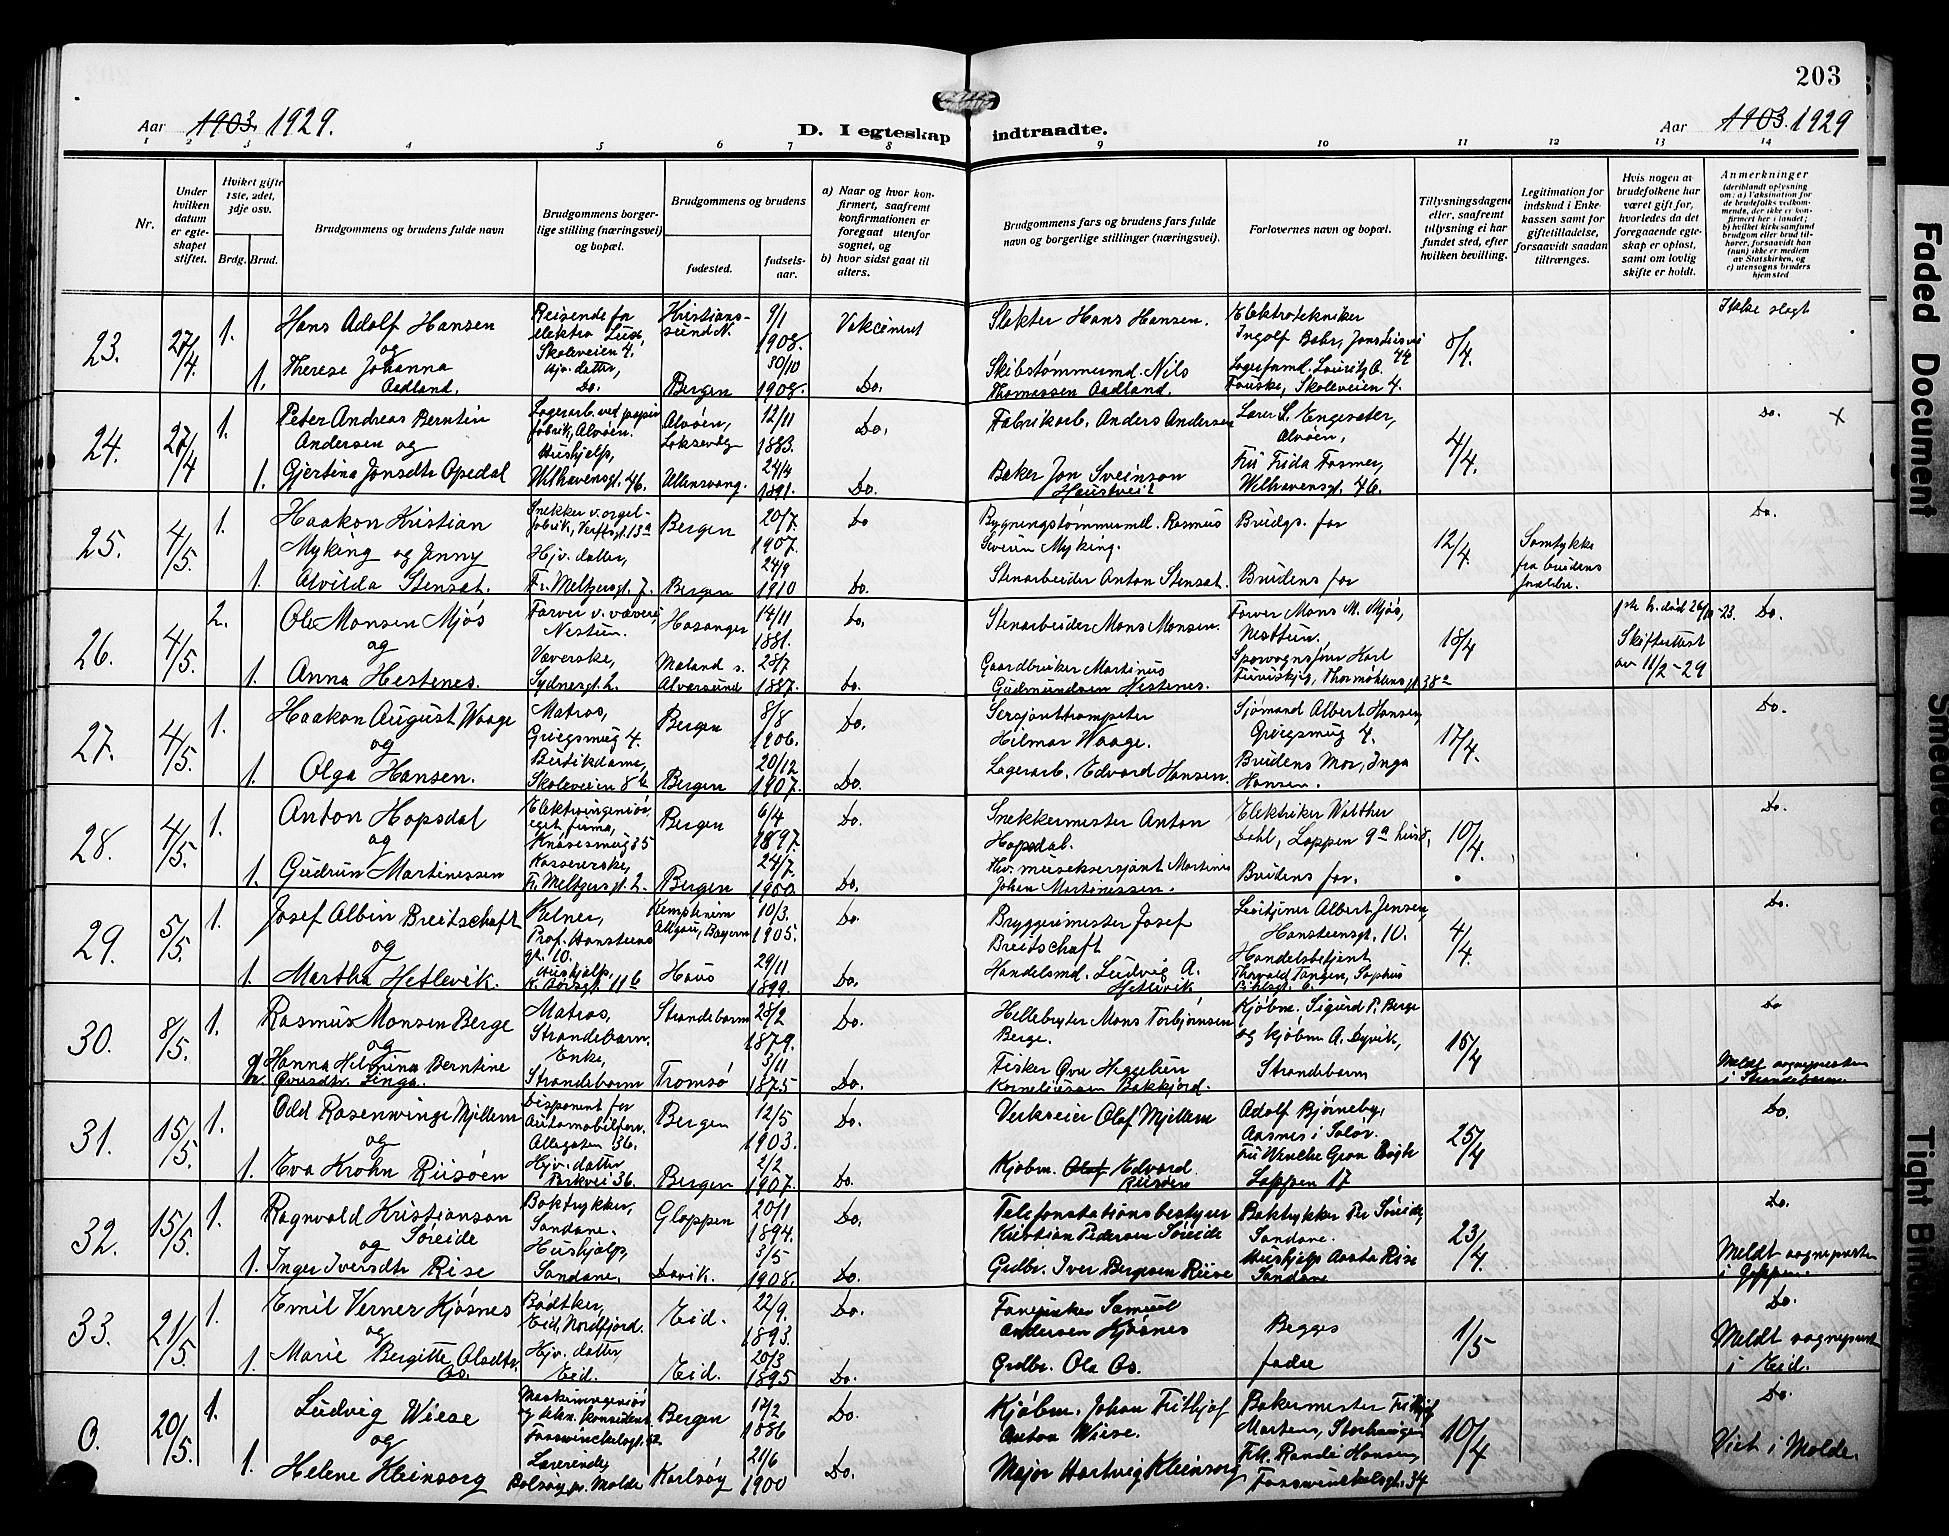 203
Aar 1903. 1929.
D. I egteskap indtraadte.
Aar 1903. 1929
1 2 3 4 5 6 7 8 9 10 11 12 13 14
Nr.
Under hvilken datum er egteskapet stiftet.
Hvilket gifte 1ste, 2det, 3dje osv.
Brdg. Brud.
Brudgommens og brudens fulde navn
Brudgommens borgerlige stilling (næringsvei) og bopæl.
Brudgommens og brudens
fødested.
fødselsaar.
a) Naar og hvor konfirmert, saafremt konfirmationen er foregaat utenfor sognet, og
b) hvor sidst gaat til alters.
Brudgommens fars og brudens fars fulde navn og borgerlige stillinger (næringsvei).
Forlovernes navn og bopæl.
Tillysningsdagene eller, saafremt tillysning ei har fundet sted, efter hvilken bevilling.
Legitimation for indskud i Enkekassen samt for giftetilladelse, forsaavidt saadan tiltrænges.
Hvis nogen av brudefolkene har været gift før, hvorledes da det foregaaende egteskap er opløst, samt om lovlig skifte er holdt.
Anmerkninger
(deriblandt oplysning om: a) Vaksination for de brudefolks vedkommende, der ikke er konfirmert her i landet; b) hvilket kirkesamfund brudgom eller brud tilhører, forsaavidt han (hun) ikke er medlem av Statskirken, og c) utensogns bruders hjemsted
23. 27/4 1. Hans Adolf Hansen
og
1. Therese Johanna
Aadland.
Reisende for
elektra
Skoleveien 4.
Hjv. datter,
Do.
Kristiansund N.
Bergen
9/1
1908.
30/10
1908.
Vakcinert
Do.
Slakter Hans Hansen.
Skibstømmermd. Nils
Thomassen Aadland.
Elektrotekniker
Ingolf Bahr,
44
Lagerformd. Lauritz A.
Fauske, Skoleveien 4.
8/4.
Ikke slegt
24. 27/4 1. Peter Andreas Berntin
Andersen og
1. Gjertina Jonsdtr Opedal
Lagerarb. ved papirfabrik, Alvøen.
Hushjelp,
Welhavensgt. 46.
Alvøen,
Laksevåg
Ullensvang.
12/11
1883.
24/4
1891.
Do.
Do.
Fabrikarb. Anders Andersen
Baker Jon Sveinson
Haustveit
Lærer S. Engesæter,
Alvøen,
Frk Frida Fasmer,
Welhavensgt. 46.
4/4.
Do. X
25. 4/5. 1. Haakon Kristian
Myking og Jenny
1. Alvilda Stensæt.
Snekker v. orgelfabrik, Verftsgt. 13a
Hjv. datter,
Fr. Meltzersgt. 7.
Bergen
Bergen
20/7.
1907.
24/9
1910
Do
Do.
Bygningstømmermd. Rasmus
Severin Myking.
Stenarbeider Anton Stensæt.
Brudgs. far
Brudens far
12/4.
Samtykke
fra brudens
forældre.
Do.
26. 4/5. 2. Ole Monsen Mjøs
og
1. Anna Hestenes.
Farver v. væveri,
Nesttun.
Væverske,
Sydnesgt. 2.
Hosanger
Mæland s.
Alversund
14/11
1881.
28/7
1887.
Do.
Do.
Stenarbeider Mons Monsen.
Gaardbruker Martinus
Gudmundsen Hestenes.
Farver Mons M. Mjøs,
Nesttun.
Sporvognsfører Karl
Thormøhlensgt. 38a
18/4
1ste h. død
Skifteattest
av 11/2-29
Do.
27. 4/5. 1. Haakon August Waage
og
1. Olga Hansen.
Matros,
Griegsmug 4.
Butikdame,
Skoleveien 8b
Bergen
Bergen
8/8
1906.
20/12
1907.
Do.
Do.
Sersjanttrompeter
Hilmar Waage.
Lagerarb. Edvard Hansen.
Sjømand Albert Hansen,
Griegsmug 4.
Brudens Mor, Inga
Hansen.
17/4.
Do.
28. 4/5. 1. Anton Hopsdal
og
1. Gudrun Martinessen
Elektroingeniør
eget firma,
Knøsesmug 35
Kassererske,
Fr. Meltzersgt. 2.
Bergen
Bergen
6/4
1897.
24/7.
1900.
Do.
Do.
Snekkermester Anton
Hopsdal.
Hv. musiksersjant Martines
Johan Martinessen.
Elektriker Walther
Dahl, Lappen 9a
Brudens far.
10/4.
Do.
29. 5/5. 1. Josef Albin Breitschaft
og
1. Martha Hetlevik.
Kelner,
Prof. Hansteens
gt. 10.
Hushjelp,
11b
Kempten im
Allgäu, Bayern
Haus
10/3.
1905.
29/11
1899.
Do.
Do.
Bryggerimester Josef
Breitschaft
Handelsmd. Ludvig A.
Hetlevik
Albert Jensen,
Hansteensgt. 10.
Handelsbetjent
Thorvald Tangen, Sophus
6.
4/4.
Do.
30. 8/5. 1. Rasmus Monsen Berge
og
Hanna Helmina Berntine
Ovesdtr. Linga.
Matros,
Strandebarm.
Enke,
Strandebarm
Strandebarm
Tromsø
28/2
1879.
3/11
1875
Do.
Do.
Hellebryter Mons Torbjørnsen
Berge.
Fisker Ove Heggelien
Korneliussen Bakkjord.
Kjøbm. Sigurd P. Berge
og kjøbm A. Dyvik,
Strandebarm
15/4
Do
Meldt sognepresten
i Strandebarm.
31. 15/5. 1. Odd Rosenvinge Mjellem
og
1. Eva Krohn Riisøen
Disponent for
Automobilforr.
Allégaten 36.
Hjv. datter,
Parkvei 36.
Bergen
Bergen
12/5
1903.
2/2
1907.
Do.
Do.
Verkseier Olaf Mjellem
Kjøbm. Olaf Edvard
Riisøen
Adolf Bjørneby,
Aasnes i Solør.
Fru Wenche Gran Bøgh
Lappen 17
25/4
Do.
32. 15/5. 1. Ragnvald Kristianson
Søreide
og
1. Inger Iversdtr Rise
Boktrykker,
Sandane.
Hushjelp,
Sandane.
Gloppen
Davik.
20/1
1894.
3/5
1908.
Do.
Do.
Telefonstationsbestyrer
Kristian Pedersen Søreide
Grdbr. Iver Bergesen Riise
Boktrykker Per Søreide,
Sandane.
Hushjelp Aasta Rise
Sandane
23/4.
Do.
Meldt sognepresten
i Gloppen.
33. 21/5. 1. Emil Verner Kjøsnes
og
1. Marie Bergitte Olsdtr.
Os.
Bødtker,
Eid, Nordfjord.
Hjv. datter,
Eid.
Eid.
Eid.
22/9.
1893.
20/3
1895
Do.
Do.
Samuel
Andersen Kjøsnes
Grdbr. Ola Os.
Begges
fædre
1/5
Do.
Meldt sognepresten
i Eid.
0. 20/5. 1. Ludvig Wiese
og
1. Helene Kleinsorg
Maskiningeniør
Fosswinckelsgt. 52
Lærerinde,
Bolsøy pr. Molde
Bergen
Karlsøy
17/2
1886
21/6
1900
Do.
Do.
Kjøbm. Johan Fritjof
Anton Wiese.
Major Hartvig Kleinsorg
Bakermester Fritjof
Martens, Storhaugen
Frk. Randi Hansen,
Fosswinckelsgt. 34
10/4
Do.
Viet i Molde
Faded Document
Smeared
Tight Bind